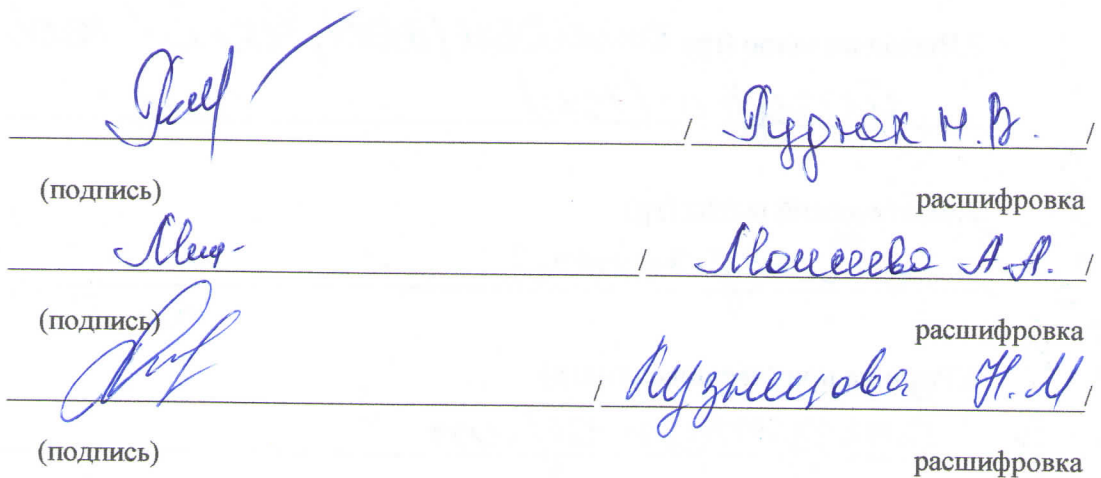 / Гуднок Н.В. /
(подпись) расшифровка
/ Моисеева А.А. /
(подпись) расшифровка
/ Кузнецова Н.М /
(подпись) расшифровка